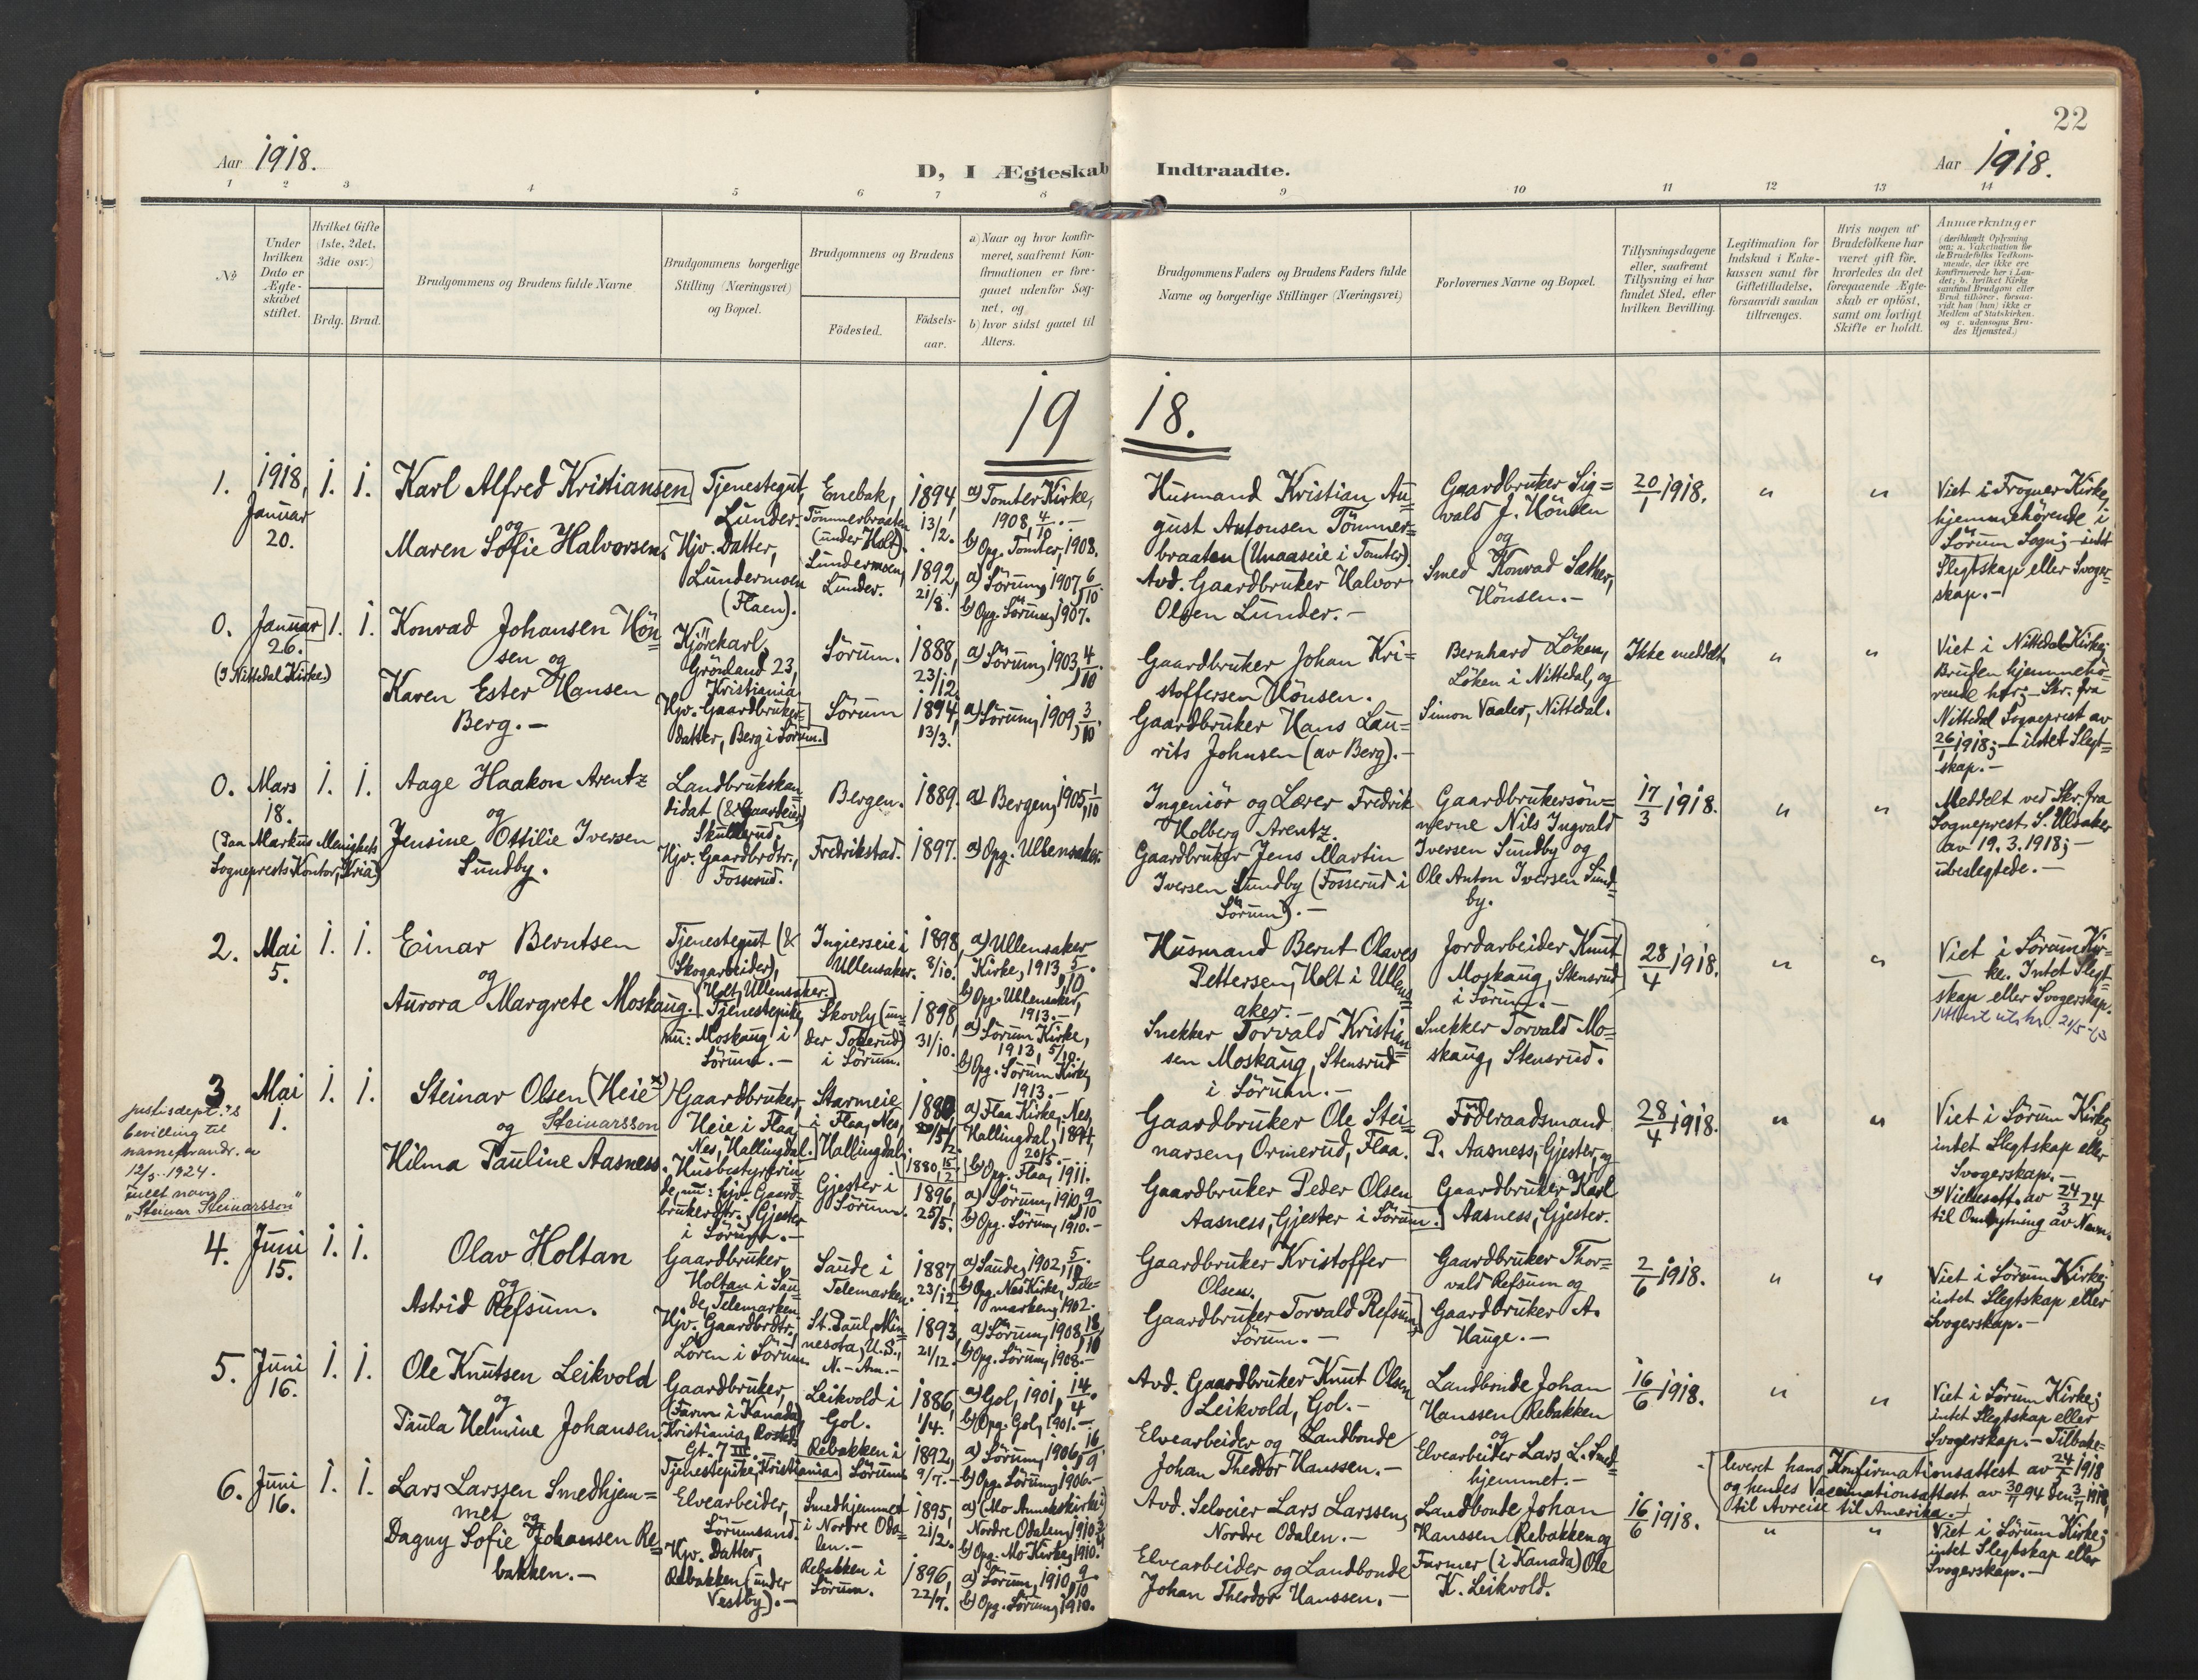 22
Aar 1918.
D, I Ægteskab Indtraadte.
Aar 1918.
1 2 3 4 5 6 7 8 9 10 11 12 13 14
No
Under hvilken Dato er Ægte-skabet stiftet.
Hvilket Gifte (1ste, 2det, 3die osv.)
Brdg. Brud.
Brudgommens og Brudens fulde Navne
Brudgommens borgerlige Stilling (Næringsvei) og Bopæl.
Brudgommens og Brudens
Födested.
Födsels-aar.
a) Naar og hvor konfir-
meret, saafremt Kon-
firmationen er fore-
gaaet udenfor Sog-
net, og
b) hvor sidst gaaet til
Alters.
Brudgommens Faders og Brudens Faders fulde
Navne og borgerlige Stillinger (Næringsvei)
Forlovernes Navne og Bopæl.
Tillysningsdagene
eller, saafremt
Tillysning ei har
fundet Sted, efter
hvilken Bevilling.
Legitimation for
Indskud i Enke-
kassen samt for
Giftetilladelse,
forsaavidt saadan
tiltrænges.
Hvis nogen af
Brudefolkene har
været gift för,
hvorledes da det
foregaaende Ægte-
skab er oplöst,
samt om lovligt
Skifte er holdt.
Anmærkninger
(deriblandt Oplysning
om: a. Vakcination for
de Brudefolks Vedkom-
mende, der ikke ere
konfirmerede her i Lan-
det; b. hvilket Kirke-
samfund Brudgom eller
Brud tilhörer, forsaa-
vidt han (hun) ikke er
Medlem af Statskirken,
og c. udensogns Bru-
des Hjemsted.)
1918.
1.
1918, Januar 20.
1. 1.
Karl Alfred Kristiansen
og
Maren Sofie Halvorsen,
Tjenestegut,
Lunder.
Hjv. Datter,
Lundermoen
(Flaen).
Enebak,
Tömmerbraaten
(under Holt).
Lundermoen,
Lunder.
1894,
13/2.
1892,
21/8.
a) Tomter Kirke,
1908, 4/10. -
b) Opg. Tomter, 1908.
a) Sörum, 1907, 6/10
b) Opg. Sörum, 1907.
Husmand Kristian Au=
gust Antonsen Tömmer=
braaten (Unaaseie i Tomter)
Avd. Gaardbruker Halvor
Olsen Lunder. -
Gaardbruker Sig=
vald J. Hönsen
og
Smed Konrad Sæther,
Hönsen. -
20/1 1918.
"
"
Viet i Frogner Kirke,
hjemmehörende i
Sörum Sogn; - intet
Slegtskap eller Svoger=
skap. -
0.
Januar 26.
(I Nittedal Kirke.)
1. 1.
Konrad Johansen Hön=
sen og
Karen Ester Hansen
Berg. -
Kjörekarl,
Grönland 23,
Kristiania
Hjv. Gaardbruker=
datter, Berg i Sörum.
Sörum.
Sörum
1888,
23/12.
1894,
13/3.
a) Sörum, 1903, 4/10.
a) Sörum, 1909, 3/10.
Gaardbruker Johan Kri=
stoffersen Hönsen.
Gaardbruker Hans Lau=
rits Johnsen (av Berg). -
Bernhard Löken,
Löken i Nittedal, og
Simon Vaaler, Nittedal.
Ikke meddelt
"
"
Viet i Nittedal Kirke;
Bruden hjemmehö=
rende her; - Skr. fra
Nittedal Sogneprest av
26/1 1918; - intet Slegt=
skap. -
0.
Mars 18.
(Paa Markus Menighets
Sogneprests Kontor, Kria.)
1. 1.
Aage Haakon Arentz
og
Jensine Ottilie Iversen
Sundby.
Landbrukskan=
didat (& Gaardeier)
Skullerud.
Hjv. Gaardbrdtr.,
Fosserud.
Bergen.
Fredrikstad.
1889.
1897.
a) Bergen, 1905, 1/10
b) Opg. Ullensaker.
Ingeniör og Lærer Fredrik
Holberg Arentz.
Gaardbruker Jens Martin
Iversen Sundby (Fosserud i
Sörum). -
Gaardbrukersön=
nerne Nils Ingvald
Iversen Sundby og
Ole Anton Iversen Sund=
by.
17/3 1918.
"
"
Meddelt ved Skr. fra
Sogneprest S. Ulsaker
av 19.3.1918; -
ubeslegtede. -
2.
Mai 5.
1. 1.
Einar Berntsen
og
Aurora Margrete Moskaug.
Tjenestegut (&
Skogarbeider),
(Holt, Ullensaker.
Tjenestepike,
nu: Moskaug i
Sörum. -
Ingierseie i
Ullensaker.
Skovly (un=
der Toderud)
i Sörum.
1898,
8/10.
1898,
31/10.
a) Ullensaker
Kirke, 1913, 5/10.
b) Opg. Ullensaker,
1913. -
a) Sörum Kirke,
1913, 5/10.
b) Opg. Sörum Kirke,
1913. -
Husmand Bernt Olaves
Pettersen, Holt i Ullens=
aker. -
Snekker Torvald Kristian=
sen Moskaug, Stensrud
i Sörum. -
Jordarbeider Knut
Moskaug, Stensrud
i Sörum. -
Snekker Torvald Mo=
skaug, Stensrud.
28/4 1918.
"
"
Viet i Sörum Kir=
ke. Intet Slegt=
skap eller Svogerskap.
Attest utskr. 21/5-63
3
Mai 1.
justisdept.'s
bevilling til
navneforandr. a
12/5. 1924.
fullt navn
"Steinar Steinarsson"
1. 1.
Steinar Olsen (Heie x)
og Steinarsson
Hilma Pauline Aasness.
Gaardbruker,
Heie i Flaa,
Nes, Hallingdal.
Husbestyrerin=
de, nu: hjv. Gaard=
brukerdtr., Gjester
i Sörum. -
Starmeie
i Flaa, Nes,
Hallingdal.
Gjester i
Sörum.
1880,
1880 15/12
1896,
25/5.
a) Flaa Kirke, Nes,
Hallingdal, 1894,
20/5. -
b) Opg. Flaa, 1911.
a) Sörum, 1910, 9/10
b) Opg. Sörum, 1910. -
Gaardbruker Ole Stei=
narsen, Ormerud, Flaa.
Gaardbruker Peder Olsen
Aasness, Gjester i Sörum.
Föderaadsmand
P. Aasness, Gjester, og
Gaardbruker Karl
Aasness, Gjester.
28/4 1918.
"
"
Viet i Sörum Kirke;
intet Slegtskap eller
Svogerskap. -
x) Vielsesatt. av 24/3 24
til Ombytning av Navn.
4.
Juni 15.
1. 1.
Olav Holtan
og
Astrid Refsum.
Gaardbruker
Holtan i Sau=
de, Telemarken
Hjv. Gaardbrdtr.,
Lören i Sörum
Saude i
Telemarken.
St. Paul, Min=
nesota, U.S.,
N. - Am. -
1887,
23/12
1893,
21/12.
a) Saude, 1902, 5/10
b) Opg. Nes Kirke, Tele=
marken, 1902.
a) Sörum, 1908, 18/10
b) Opg. Sörum, 1908. -
Gaardbruker Kristoffer
Olsen.
Gaardbruker Torvald Refsum,
Sörum. -
Gaardbruker Thor=
vald Refsum og
Gaardbruker A.
Hauge. -
2/6 1918.
"
"
Viet i Sörum Kirke;
intet Slegtskap eller
Svogerskap. -
5.
Juni 16.
1. 1.
Ole Knutsen Leikvold
og
Paula Helmine Johansen.
Gaardbruker,
(Farm i Kanada)
Kristiania, Rosteds
Gt. 7 III. -
Tjenestepike, Kristiania.
Leikvold i
Gol.
Rebakken i
Sörum
1886,
1/4.
1892,
9/7. -
a) Gol, 1901, 14/4.
b) Opg. Gol, 1901. -
a) Sörum, 1906, 16/9
b) Opg. Sörum, 1906. -
Avd. Gaardbruker Knut Olsen
Leikvold, Gol. -
Elvearbeider og Landbonde
Johan Theodor Hanssen. -
Landbonde Johan
Hanssen Rebakken
og
Elvearbeider Lars L. Smed=
hjemmet. -
16/6 1918.
"
"
Viet i Sörum Kirke;
intet Slegtskap eller
Svogerskap. - Tilbake=
leveret hans Konfirmationsattest av 24/5 1918
og hendes Vaccinationsattest av 30/11 94 den 3/7 1918,
til Avreise til Amerika. -
6.
Juni 16.
1. 1.
Lars Larssen Smedhjem=
met og
Dagny Sofie Johansen Re=
bakken. -
Elvearbeider,
Sörumsand.
Hjv. Datter,
Rebakken (under
Vestby). -
Smedhjemmet
i Nordre Oda=
len. -
Rebakken i
Sörum.
1895,
21/2.
1896,
22/7.
a) (Mo Annekskirke)
Nordre Odalen, 1910
b) Opg. Mo Kirke, 1910.
a) Sörum, 1910, 9/10
b) Opg. Sörum, 1910.
Avd. Selveier Lars Larssen,
Nordre Odalen. -
Elvearbeider og Landbonde
Johan Theodor Hanssen. -
Landbonde Johan
Hanssen Rebakken og
Farmer (i Kanada) Ole
K. Leikvold.
16/6 1918.
"
"
Viet i Sörum Kirke;
intet Slegtskap eller
Svogerskap. -